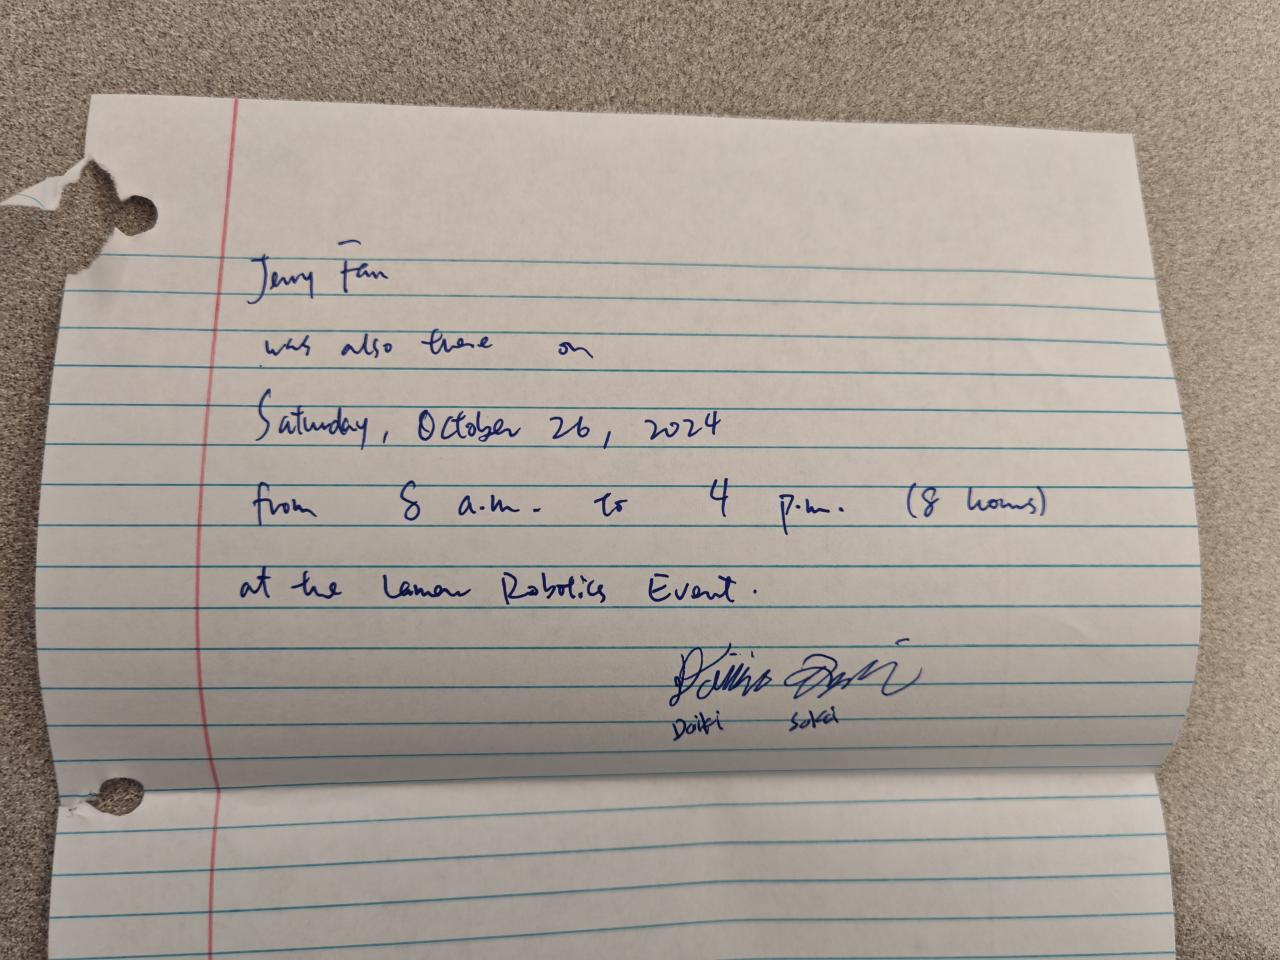 Jerry Fan
was also there on
Saturday, October 26, 2024
from 8 a.m. to 4 p.m. (8 hours)
at the Lamar Robotics Event.
Daiki Sakai